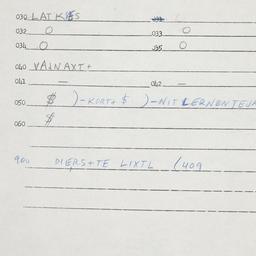 030 LATKES
032 O 033 O
034 O 035 O
040 VAINAXT+
041 — 042 —
050 $ )-KORT+ $ )-NIT LERNENTEUR
060 $
900 DIERS+TE LIXTL (409